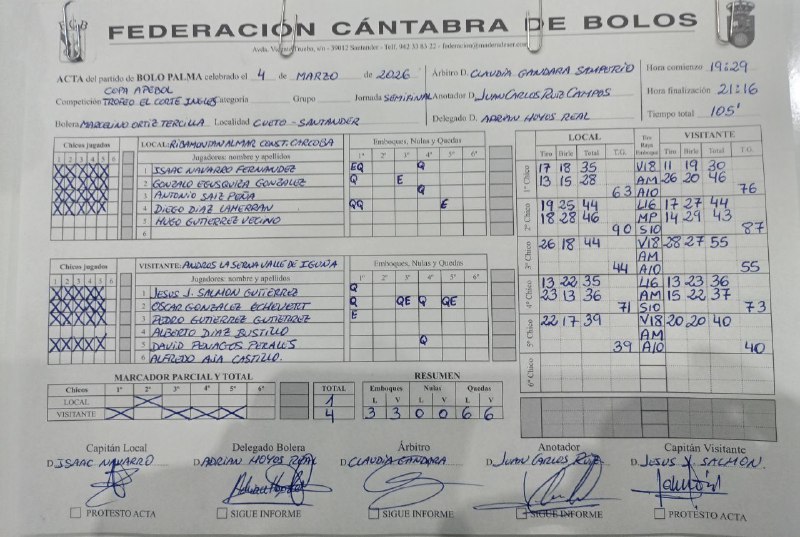 FEDERACIÓN CÁNTABRA DE BOLOS
ACTA del partido de BOLO PALMA celebrado el 4 de MARZO de 2026
Árbitro D. CLAUDIA GANDARA SAMPERIO
Hora comienzo 19:29
COPA APEBOL
Competición TROFEO EL CORTE INGLES Categoría Grupo Jornada SEMIFINAL
Anotador D. JUAN CARLOS RUIZ CAMPOS
Hora finalización 21:16
Bolera MARCELINO ORTIZ TERCILLA Localidad CUETO - SANTANDER
Delegado D. ADRIAN HOYOS REAL
Tiempo total 105'
Chicos jugados
1 2 3 4 5 6
LOCAL: RIBAMONTAN ALMAR CONST. CARCOBA
Jugadores: nombre y apellidos
Emboques, Nulas y Quedas
1º 2º 3º 4º 5º 6º
1 ISAAC NAVARRO FERNANDEZ EQ Q
2 GONZALO EGUSQUIZA GONZALEZ Q E
3 ANTONIO SAIZ PEÑA Q
4 DIEGO DIAZ LAHERRAN QQ E
5 HUGO GUTIERREZ VECINO
6
Chicos jugados
1 2 3 4 5 6
VISITANTE: ANDROS LA SERNA VALLE DE IGUÑA
Jugadores: nombre y apellidos
Emboques, Nulas y Quedas
1º 2º 3º 4º 5º 6º
1 JESUS J. SALMON GUTIERREZ Q
2 OSCAR GONZALEZ ECHEVERRI Q QE Q QE
3 PEDRO GUTIERREZ GUTIERREZ E
4 ALBERTO DIAZ BUSTILLO
5 DAVID PENAGOS PERALES Q
6 ALFREDO AJA CASTILLO.
LOCAL VISITANTE
Tiro Birle Total T.G. Tiro Birle Total T.G.
1º Chico
17 18 35 V18 11 19 30
13 15 28 AM 26 20 46
63 A10 76
2º Chico
19 25 44 L16 17 27 44
18 28 46 MP 14 29 43
90 S10 87
3º Chico
26 18 44 V18 28 27 55
AM
44 A10 55
4º Chico
13 22 35 L16 13 23 36
23 13 36 AM 15 22 37
71 S10 73
5º Chico
22 17 39 V18 20 20 40
AM
39 A10 40
6º Chico
MARCADOR PARCIAL Y TOTAL
Chicos 1º 2º 3º 4º 5º 6º TOTAL
LOCAL 1
VISITANTE 4
RESUMEN
Emboques Nulas Quedas
L V L V L V
3 3 0 0 6 6
Capitán Local Delegado Bolera Árbitro Anotador Capitán Visitante
D. ISAAC NAVARRO D. ADRIAN HOYOS REAL D. CLAUDIA GANDARA D. JUAN CARLOS RUIZ D. JESUS J. SALMON.
PROTESTO ACTA SIGUE INFORME SIGUE INFORME SIGUE INFORME PROTESTO ACTA